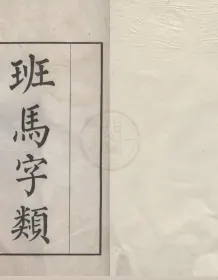 班馬字類